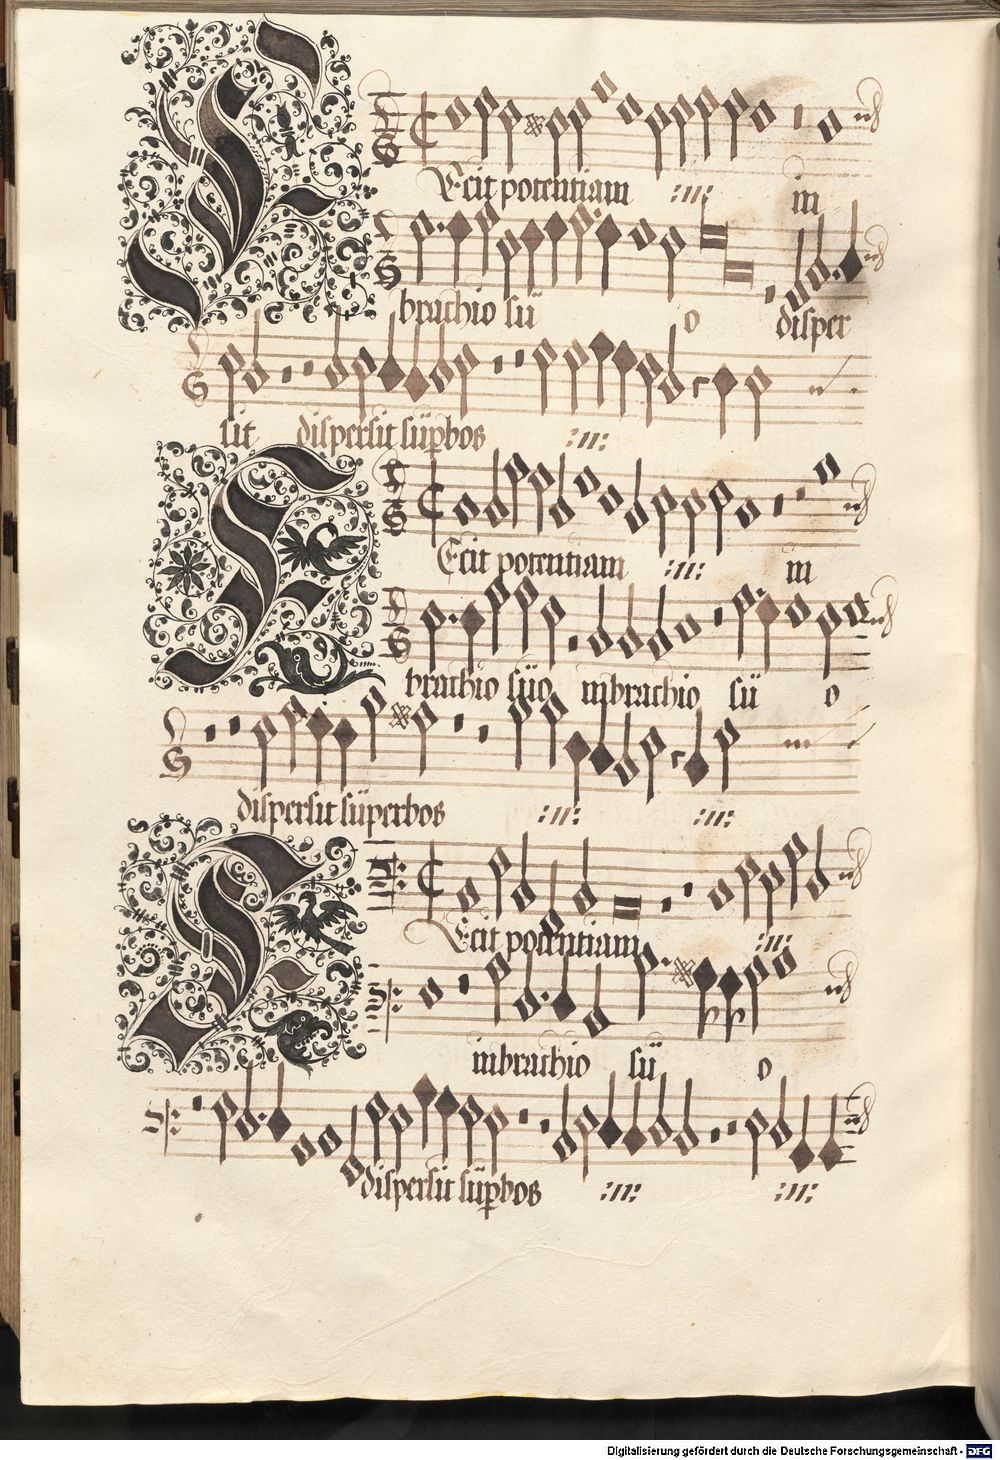 Fecit potentiam :n: in
brachio sü o disper
sit dispersit süpbos :n:
Fecit potentiam :n: in
brachio süo inbrachio sü o
dispersit süperbos :n: :n:
Fecit potentiam :n:
inbrachio sü o
dispersit süpbos :n: :n:
Digitalisierung gefördert durch die Deutsche Forschungsgemeinschaft - DFG